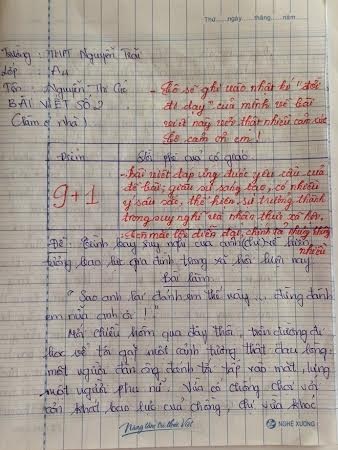 Thứ ..... ngày ..... tháng ..... năm .....
Trường: THPT Nguyễn Trãi
Lớp: A11
Tên: Nguyễn Thị Gió
- Cô sẽ ghi vào nhật ký "đời
đi dạy" của mình về bài
viết này với thật nhiều cảm xúc
Cô cảm ơn em!
BÀI VIẾT SỐ 2
(Làm ở nhà)
Điểm
Lời phê của cô giáo
9+1
- Bài viết đáp ứng được yêu cầu của
đề bài; giàu sự sáng tạo, có nhiều
ý sâu sắc, thể hiện sự trưởng thành
trong suy nghĩ và nhận thức xã hội.
- Còn mắc lỗi diễn đạt, chính tả nhưng không
nhiều
Đề: Trình bày suy nghĩ của anh (chị) về hiện
tượng bạo lực gia đình trong xã hội hiện nay
Bài làm
"Sao anh lại đánh em thế này ... đừng đánh
em nữa anh ơi!"
Mới chiều hôm qua đây thôi, trên đường đi
học về tôi gặp một cảnh tượng thật đau lòng:
một người đàn ông đánh tới tấp vào mặt, lưng
một người phụ nữ. Vừa cố chống chọi với
trận bạo lực của chồng, chị vừa khóc
Nâng tầm tri thức Việt
NGHỆ XƯƠNG